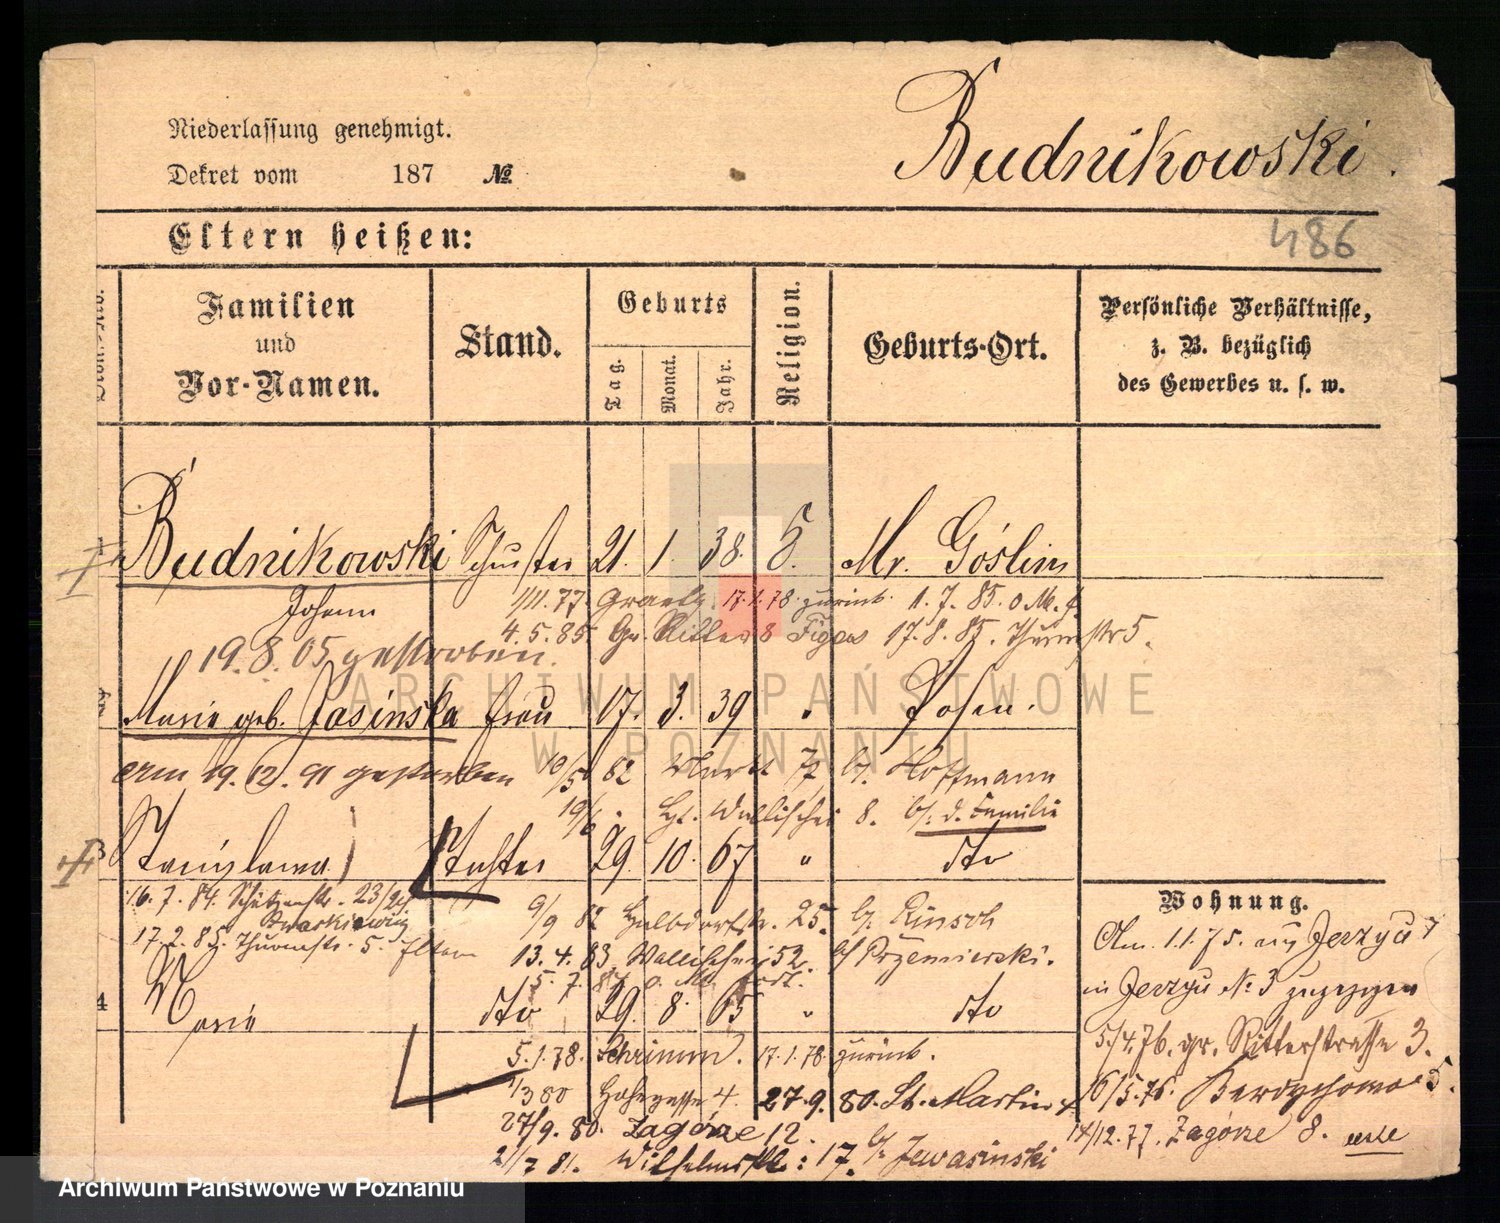 Budnikowski.
Niederlassung genehmigt.
Dekret vom 187 №
Eltern heißen:
486
Familien und Vor-Namen.
Stand.
Geburts
Tag.
Monat.
Jahr.
Religion.
Geburts-Ort.
Persönliche Verhältnisse,
z. B. bezüglich
des Gewerbes u. s. w.
Budnikowski Schuster 21. 1. 38. Mr. Góslin
Johann
1/11.77. Graetz 17.1.78. zurück. 1.7.85. o. M. f.
4.5.85 Gr. Ritter 8 17.8.85. Thurmstr 5.
19.8.05 gestorben.
Marie geb. Jasinska Frau 17. 3. 39 " Posen.
am 19.12.91 gestorben 10/5 82 Markt 77 b/. Hoffmann
19/6. Wallischei 8. b/. d. Familie
3 Stanislawa Tochter 29. 10. 67 " dto
16.7.84. Schützenstr. 23/24
9/9 82 Halbdorfstr. 25. b/. Rinsch
17.2.85. Thurmstr. 5. Eltern
13.4.83 Wallischei 52. b/ Przemierski.
5.7.84 o. M.
4 Marie dto 29. 8. 65 " dto
5.1.78. Schrimm. 17.1.78 zurück.
1/3 80 Hohegasse 4. 27.9.80. St. Martin
27/9.80. Zagórze 12.
2/7 81. Wilhelmspl: 17. b/. Jewasinski
Wohnung.
Am 1.1.75. aus Jerzyce 7
in Jerzyce № 3 zugezogen
5/4.76. gr. Ritterstrasse 3.
16/5.76. 5.
14/12.77. Zagórze 8.
ARCHIWUM PAŃSTWOWE
W POZNANIU
Archiwum Państwowe w Poznaniu